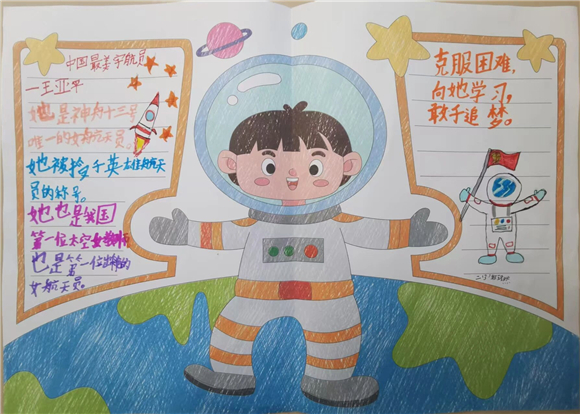 中国最美宇航员
一王亚平
她是神舟十三号
唯一的女航天员。
她被授予英雄航天
员的称号。
她也是我国
第一位太空女教师
也是第一位出舱的
女航天员。
克服困难，
向她学习，
敢于追梦。